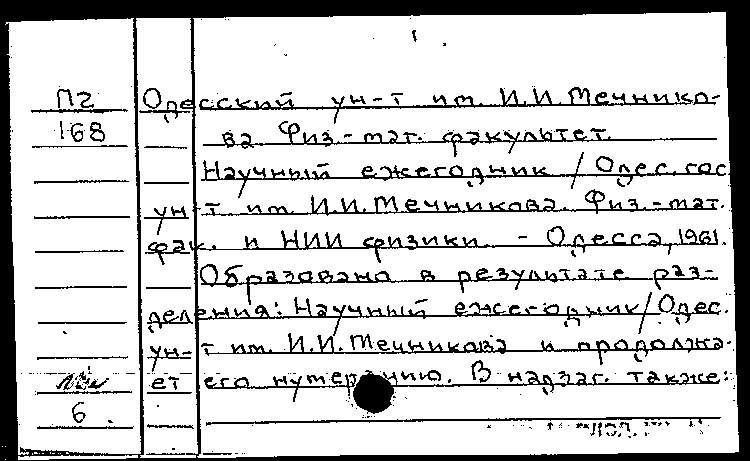 1
П2 Одесский ун-т им. И.И. Мечнико-
168 ва Физ.-мат. факультет.
Научный ежегодник / Одес. гос
ун-т им. И.И. Мечникова. Физ.-мат.
фак. и НИИ физики. - Одесса, 1961.
Образовано в результате раз-
деления: Научный ежегодник / Одес.
ун-т им. И.И. Мечникова и продолжа-
ет его нумерацию. В надзаг. также:
6